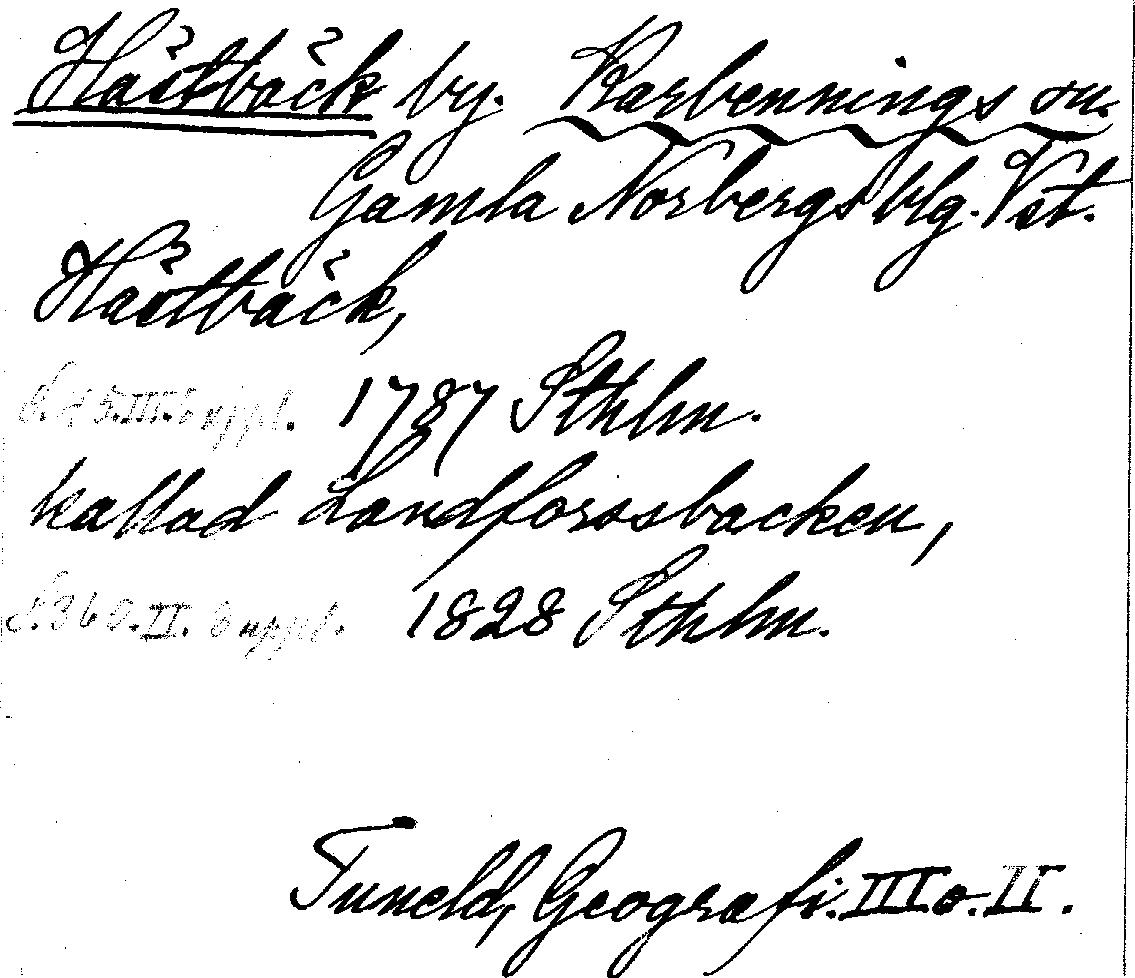 Hästbäck by. Karbennings sn.
Gamla Norbergs blg. Vstm.
Hästbäck,
S. 45. III. 6 uppl. 1787 Sthlm.
kallad Landforssbacken,
S. 360. II. 8 uppl. 1828 Sthlm.
Tuneld, Geografi. III o. II.